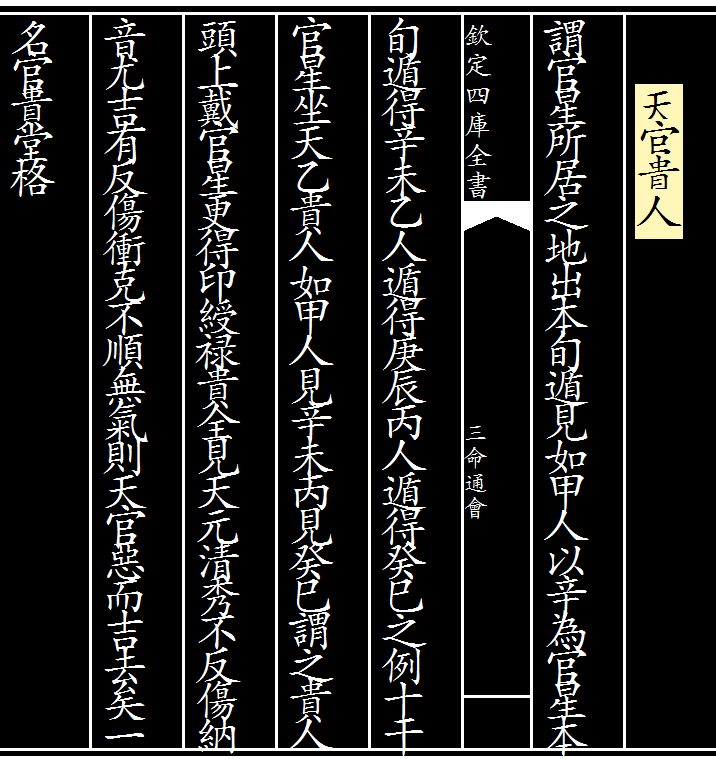 天官貴人
謂官星所居之地出本旬遁見如甲人以辛為官星本
欽定四庫全書
三命通會
旬遁得辛未乙人遁得庚辰丙人遁得癸巳之例十干
官星坐天乙貴人如甲人見辛未丙見癸巳謂之貴人
頭上戴官星更得印綬禄貴全見天元清秀不反傷納
音尤吉有反傷衝克不順無氣則天官惡而吉去矣一
名官貴堂格